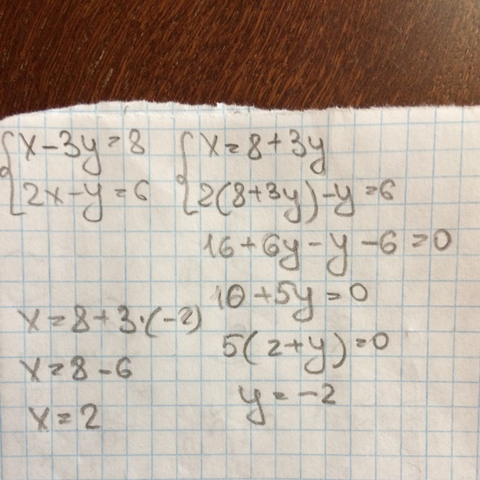 {x-3y=8
2x-y=6
{x=8+3y
2(8+3y)-y=6
16+6y-y-6=0
10+5y=0
5(2+y)=0
y=-2
x=8+3·(-2)
x=8-6
x=2